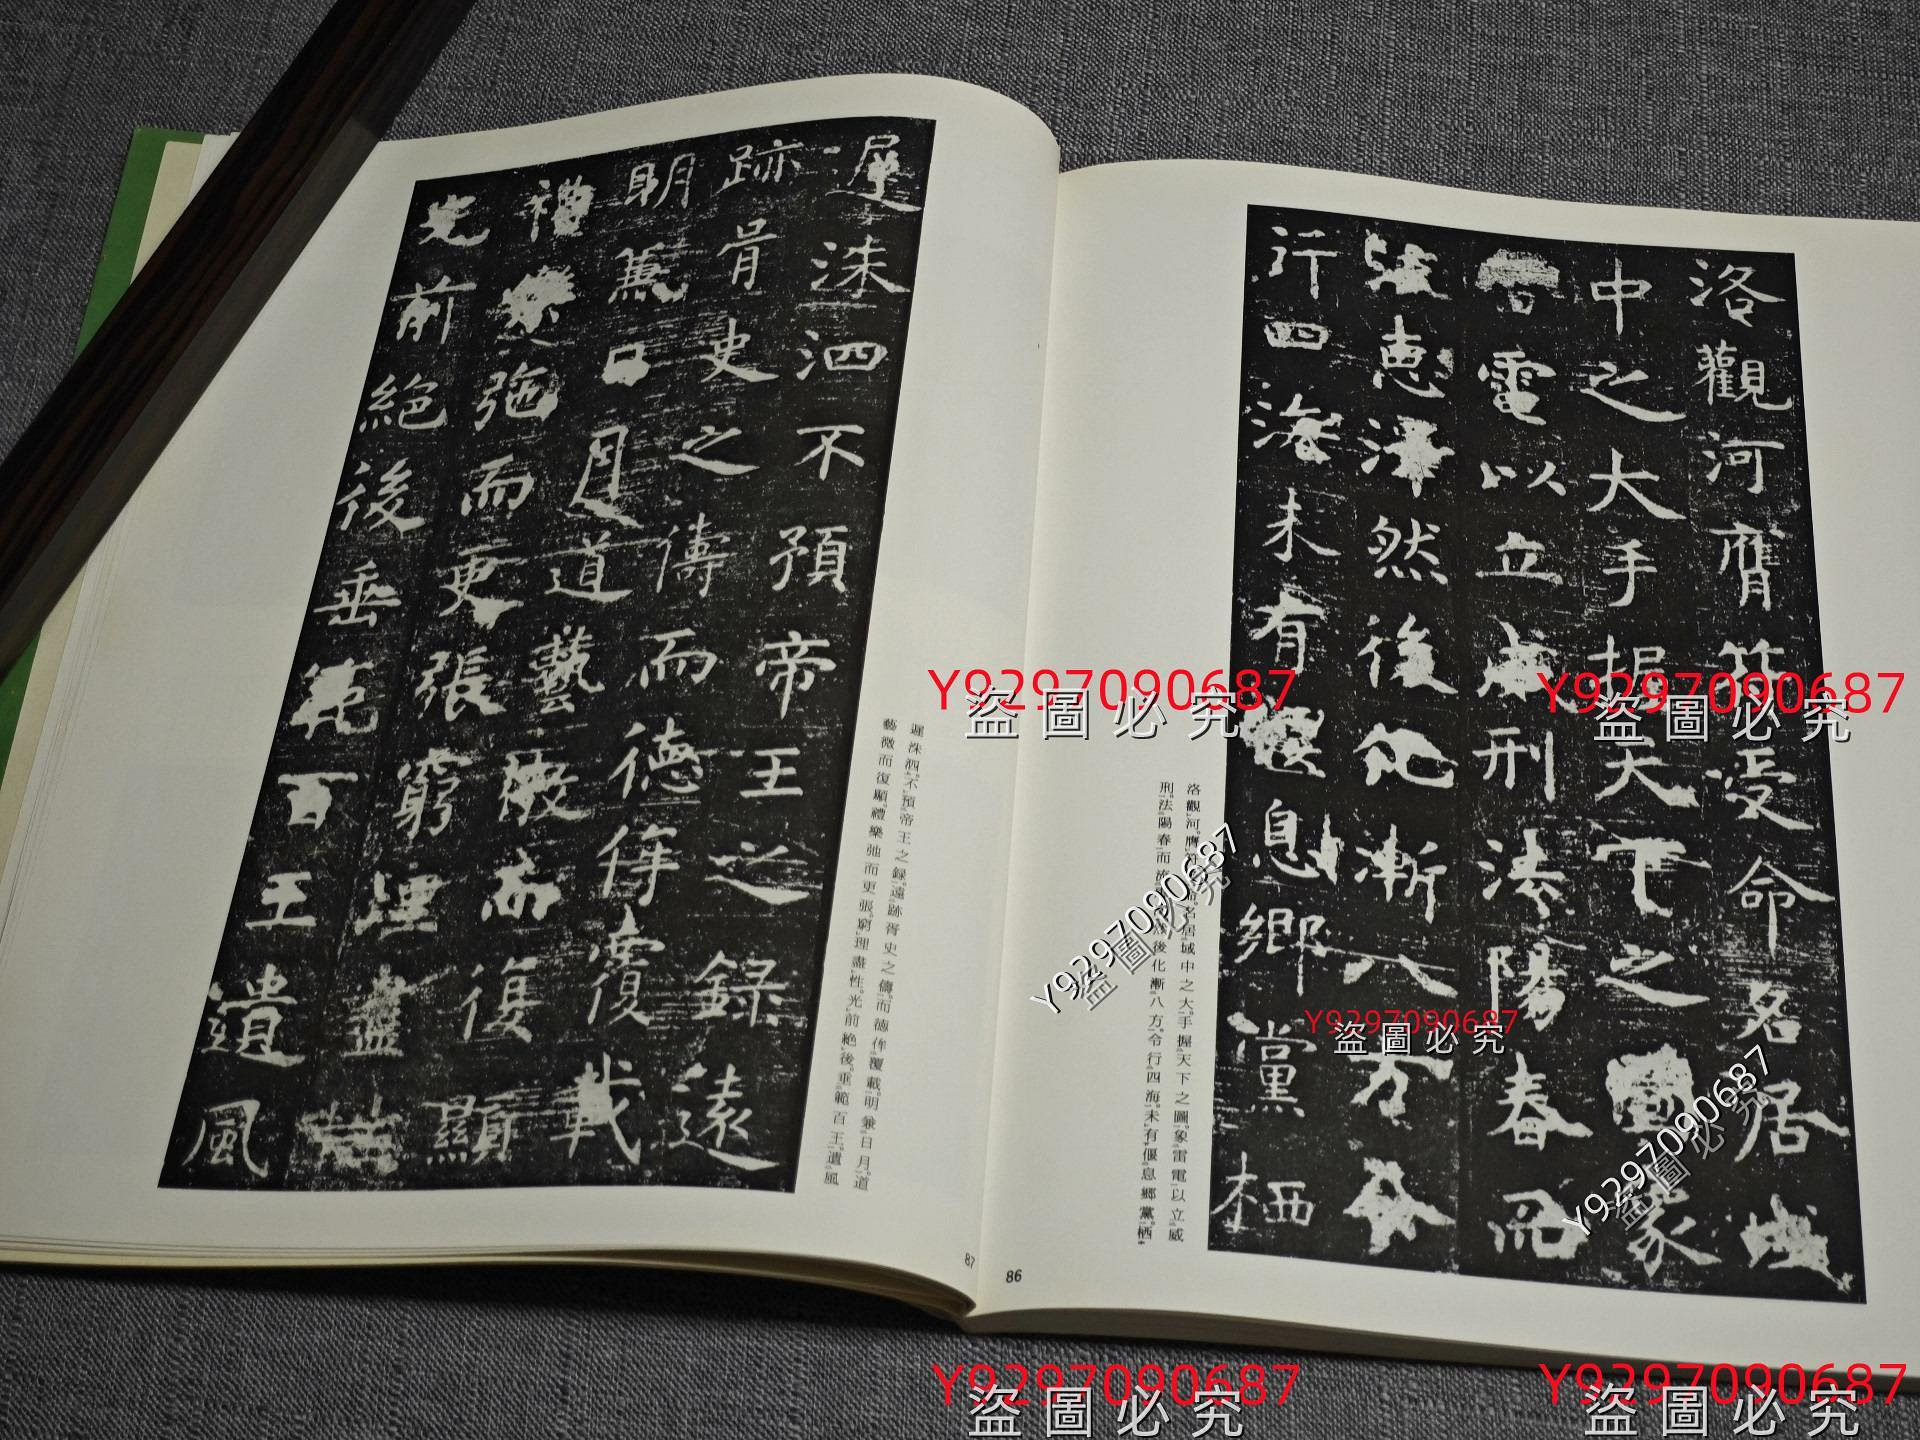 洛觀河膺符受命名居域
中之大手握天下之圖象
雷電以立威刑法陽春而
流惠澤然後化漸八方令
行四海未有偃息鄉黨栖
洛觀河。膺名居域中之大。手握天下之圖。象雷電以立威
刑。法陽春而後化漸八方。令行四海。未有偃息鄉黨。栖
86
遲洙泗不預帝王之錄遠
跡胥史之儔而德侔覆載
明兼日月道藝微而復顯
禮樂弛而更張窮理盡性
光前絕後垂範百王遺風
遲洙泗。不預帝王之録。遠跡胥史之儔。而德侔覆載。明兼日月。道
藝微而復顯。禮樂弛而更張。窮理盡性。光前絶後。垂範百王。遺風
87
Y9297090687
盜圖必究
Y9297090687
盜圖必究
Y9297090687
盜圖必究
Y9297090687
盜圖必究
Y9297090687
盜圖必究
Y9297090687
盜圖必究
Y9297090687
盜圖必究